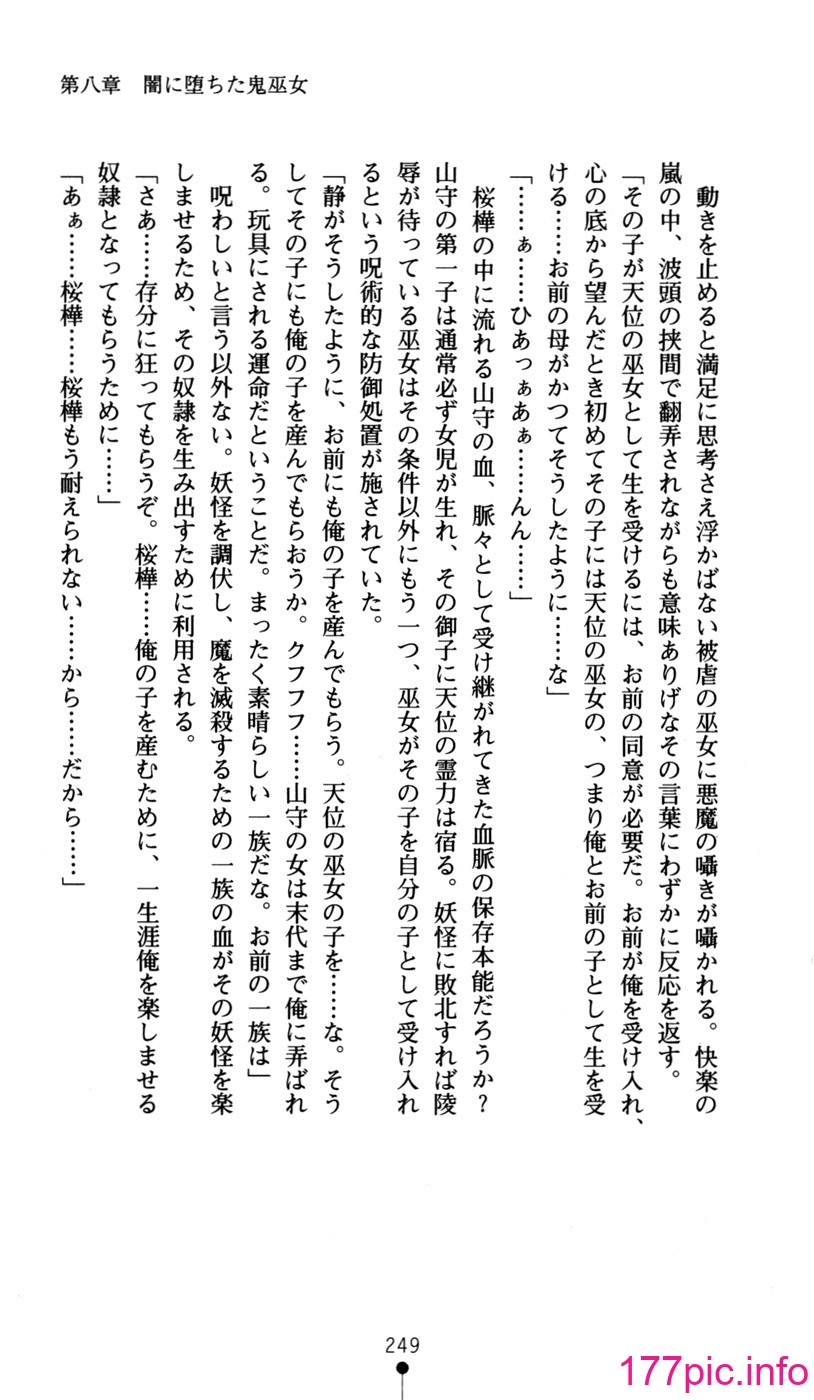 第八章　闇に堕ちた鬼巫女
　動きを止めると満足に思考さえ浮かばない被虐の巫女に悪魔の囁きが囁かれる。快楽の
嵐の中、波頭の狭間で翻弄されながらも意味ありげなその言葉にわずかに反応を返す。
「その子が天位の巫女として生を受けるには、お前の同意が必要だ。お前が俺を受け入れ、
心の底から望んだとき初めてその子には天位の巫女の、つまり俺とお前の子として生を受
ける……お前の母がかつてそうしたように……な」
「……ぁ……ひあっぁあぁ……んん……」
　桜樺の中に流れる山守の血、脈々として受け継がれてきた血脈の保存本能だろうか？
山守の第一子は通常必ず女児が生れ、その御子に天位の霊力は宿る。妖怪に敗北すれば陵
辱が待っている巫女はその条件以外にもう一つ、巫女がその子を自分の子として受け入れ
るという呪術的な防御処置が施されていた。
「静がそうしたように、お前にも俺の子を産んでもらう。天位の巫女の子を……な。そう
してその子にも俺の子を産んでもらおうか。クフフフ……山守の女は末代まで俺に弄ばれ
る。玩具にされる運命だということだ。まったく素晴らしい一族だな。お前の一族は」
　呪わしいと言う以外ない。妖怪を調伏し、魔を滅殺するための一族の血がその妖怪を楽
しませるため、その奴隷を生み出すために利用される。
「さあ……存分に狂ってもらうぞ。桜樺……俺の子を産むために、一生涯俺を楽しませる
奴隷となってもらうために……」
「あぁ……桜樺……桜樺もう耐えられない……から……だから……」
249
177pic.info